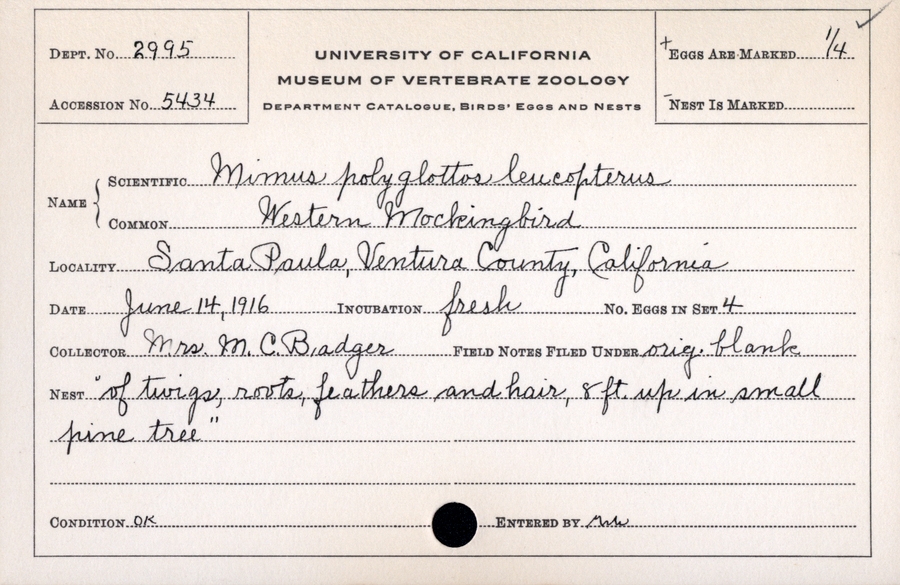 DEPT. No. 2995
ACCESSION No. 5434
UNIVERSITY OF CALIFORNIA
MUSEUM OF VERTEBRATE ZOOLOGY
DEPARTMENT CATALOGUE, BIRDS' EGGS AND NESTS
+EGGS ARE MARKED 1/4
-NEST IS MARKED
NAME
SCIENTIFIC Mimus polyglottos leucopterus
COMMON Western Mockingbird
LOCALITY Santa Paula, Ventura County, California
DATE June 14, 1916 INCUBATION fresh No. EGGS IN SET 4
COLLECTOR Mrs. M. C. Badger FIELD NOTES FILED UNDER orig. blank
NEST "of twigs, roots, feathers and hair, 8 ft. up in small
pine tree"
CONDITION OK ENTERED BY